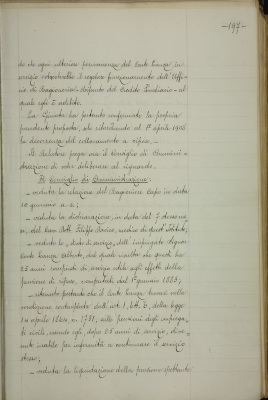 -197-
do che ogni ulteriore permanenza del Conte Lanza in
servizio comprometterebbe il regolare funzionamento dell'Uffi-
cio di Ragioneria distinto del Credito Fondiario - al
quale egli è addetto.
La Giunta ha pertanto confermato la propria
precedente proposta, solo riferendone al 1° aprile 1905
la decorrenza del collocamento a riposo. -
Il Relatore prega ora il Consiglio di Ammini-
strazione di voler deliberare al riguardo.
Il Consiglio di Amministrazione;
- veduta la relazione del Ragioniere Capo in data
10 gennaio a. c.;
- veduta la dichiarazione, in data del 7 stesso me-
se, del Cav. Dott. Filippo medico di quest'Istituto;
- veduto lo stato di servizio, dell'impiegato Signor
Conte Lanza Alberto, dal quale risulta che questi ha
25 anni compiuti di servizio utile agli effetti della
pensione di riposo, computati dal 1° gennaio 1885;
- ritenuto pertanto che il Conte Lanza trovasi nelle
condizioni contemplate dall'art. 1, lett. b, della legge
14 aprile 1864, n. 1731, sulle pensioni degli impiega-
ti civili, essendo egli, dopo 25 anni di servizio, dive-
nuto inabile per infermità a continuare il servizio
stesso;
- veduta la liquidazione della pensione spettante